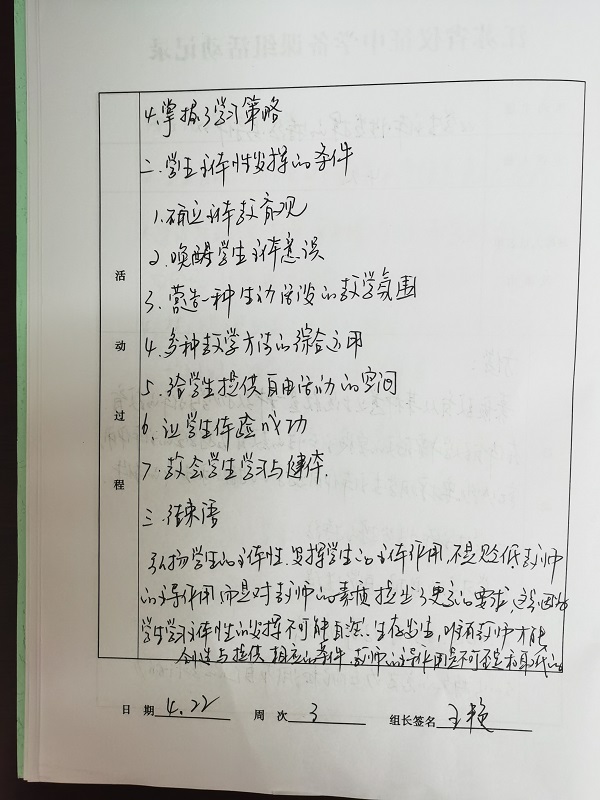 4. 掌握了学习策略
二. 学生主体性发挥的条件
1. 确立主体教育观
2. 唤醒学生主体意识
3. 营造一种生动活泼的教学氛围
4. 多种教学方法的综合运用
5. 给学生提供自由活动的空间
6. 让学生体验成功
7. 教会学生学习与健体.
三. 结束语
弘扬学生的主体性. 发挥学生的主体作用, 不是贬低教师
的主导作用, 而是对教师的素质提出了更高的要求, 这是因为
学生学习主体性的发挥不可能自然、生存出生, 唯有教师才能
创造与提供相应的条件, 教师的主导作用是不可否定和取代的
活动过程
日 期 4.22 周 次 3 组长签名 王艳